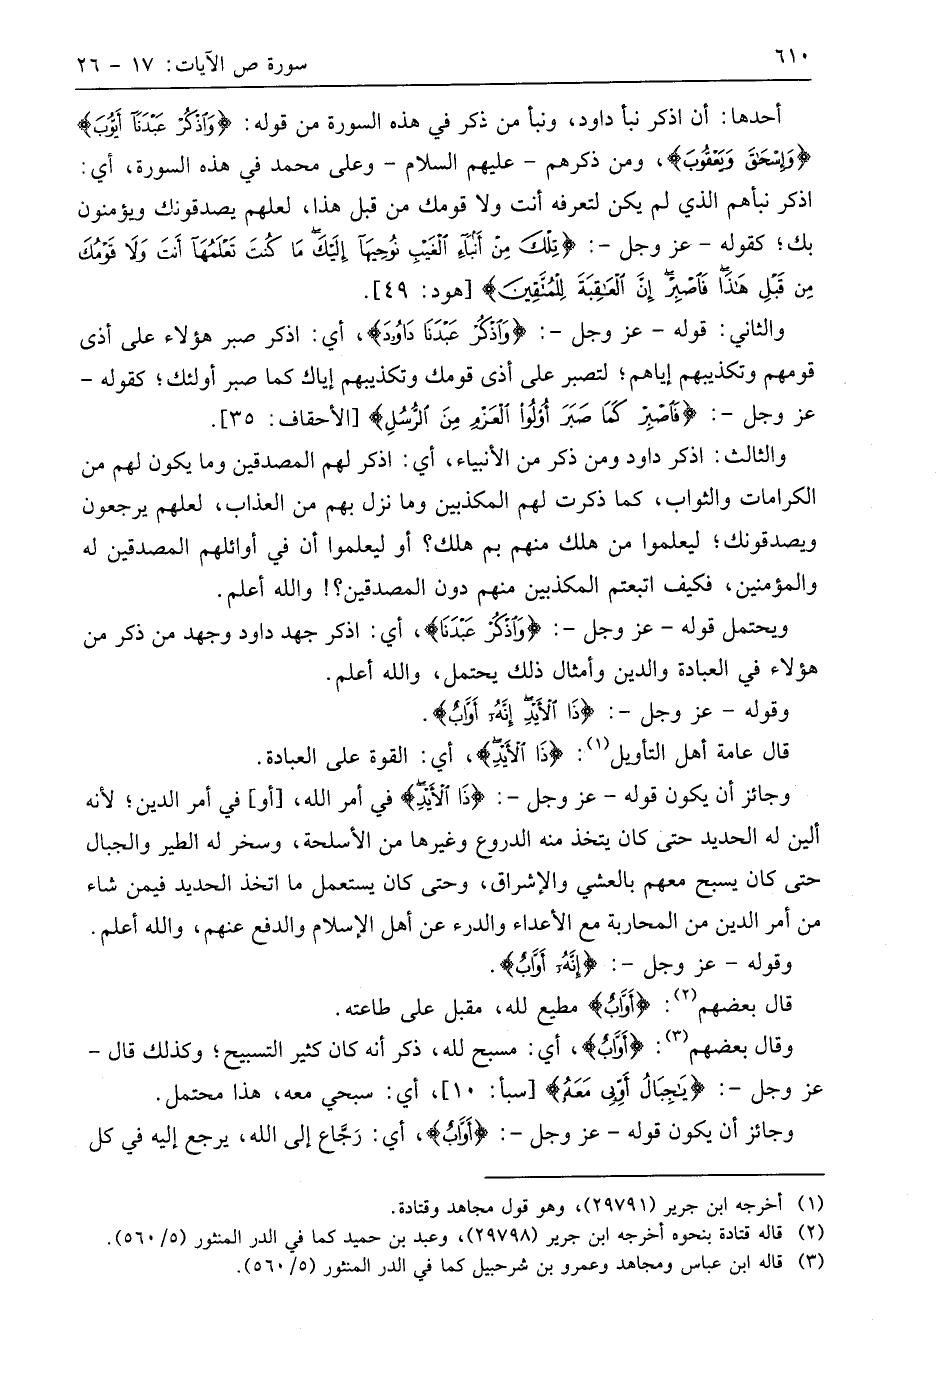 ٦١٠
سورة ص الآيات: ١٧ - ٢٦
أحدها: أن اذكر نبأ داود، ونبأ من ذكر في هذه السورة من قوله: ﴿وَٱذۡكُرۡ عَبۡدَنَآ أَيُّوبَ﴾
﴿وَإِسۡحَٰقَ وَيَعۡقُوبَ﴾، ومن ذكرهم - عليهم السلام - وعلى محمد في هذه السورة، أي:
اذكر نبأهم الذي لم يكن لتعرفه أنت ولا قومك من قبل هذا، لعلهم يصدقونك ويؤمنون
بك؛ كقوله - عز وجل -: ﴿تِلۡكَ مِنۡ أَنۢبَآءِ ٱلۡغَيۡبِ نُوحِيهَآ إِلَيۡكَۖ مَا كُنتَ تَعۡلَمُهَآ أَنتَ وَلَا قَوۡمُكَ
مِن قَبۡلِ هَٰذَاۖ فَٱصۡبِرۡۖ إِنَّ ٱلۡعَٰقِبَةَ لِلۡمُتَّقِينَ﴾ [هود: ٤٩].
والثاني: قوله - عز وجل -: ﴿وَٱذۡكُرۡ عَبۡدَنَا دَاوُۥدَ﴾، أي: اذكر صبر هؤلاء على أذى
قومهم وتكذيبهم إياهم؛ لتصبر على أذى قومك وتكذيبهم إياك كما صبر أولئك؛ كقوله -
عز وجل -: ﴿فَٱصۡبِرۡ كَمَا صَبَرَ أُوْلُواْ ٱلۡعَزۡمِ مِنَ ٱلرُّسُلِ﴾ [الأحقاف: ٣٥].
والثالث: اذكر داود ومن ذكر من الأنبياء، أي: اذكر لهم المصدقين وما يكون لهم من
الكرامات والثواب، كما ذكرت لهم المكذبين وما نزل بهم من العذاب، لعلهم يرجعون
ويصدقونك؛ ليعلموا من هلك منهم بم هلك؟ أو ليعلموا أن في أوائلهم المصدقين له
والمؤمنين، فكيف اتبعتم المكذبين منهم دون المصدقين؟! والله أعلم.
ويحتمل قوله - عز وجل -: ﴿وَٱذۡكُرۡ عَبۡدَنَا﴾، أي: اذكر جهد داود وجهد من ذكر من
هؤلاء في العبادة والدين وأمثال ذلك يحتمل، والله أعلم.
وقوله - عز وجل -: ﴿ذَا ٱلۡأَيۡدِۖ إِنَّهُۥٓ أَوَّابٌ﴾.
قال عامة أهل التأويل(١): ﴿ذَا ٱلۡأَيۡدِۖ﴾، أي: القوة على العبادة.
وجائز أن يكون قوله - عز وجل -: ﴿ذَا ٱلۡأَيۡدِۖ﴾ في أمر الله، [أو] في أمر الدين؛ لأنه
ألين له الحديد حتى كان يتخذ منه الدروع وغيرها من الأسلحة، وسخر له الطير والجبال
حتى كان يسبح معهم بالعشي والإشراق، وحتى كان يستعمل ما اتخذ الحديد فيمن شاء
من أمر الدين من المحاربة مع الأعداء والدرء عن أهل الإسلام والدفع عنهم، والله أعلم.
وقوله - عز وجل -: ﴿إِنَّهُۥٓ أَوَّابٌ﴾.
قال بعضهم(٢): ﴿أَوَّابٌ﴾ مطيع لله، مقبل على طاعته.
وقال بعضهم(٣): ﴿أَوَّابٌ﴾، أي: مسبح لله، ذكر أنه كان كثير التسبيح؛ وكذلك قال -
عز وجل -: ﴿يَٰجِبَالُ أَوِّبِي مَعَهُۥ﴾ [سبأ: ١٠]، أي: سبحي معه، هذا محتمل.
وجائز أن يكون قوله - عز وجل -: ﴿أَوَّابٌ﴾، أي: رَجَّاع إلى الله، يرجع إليه في كل
(١) أخرجه ابن جرير (٢٩٧٩١)، وهو قول مجاهد وقتادة.
(٢) قاله قتادة بنحوه أخرجه ابن جرير (٢٩٧٩٨)، وعبد بن حميد كما في الدر المنثور (٥/ ٥٦٠).
(٣) قاله ابن عباس ومجاهد وعمرو بن شرحبيل كما في الدر المنثور (٥/ ٥٦٠).